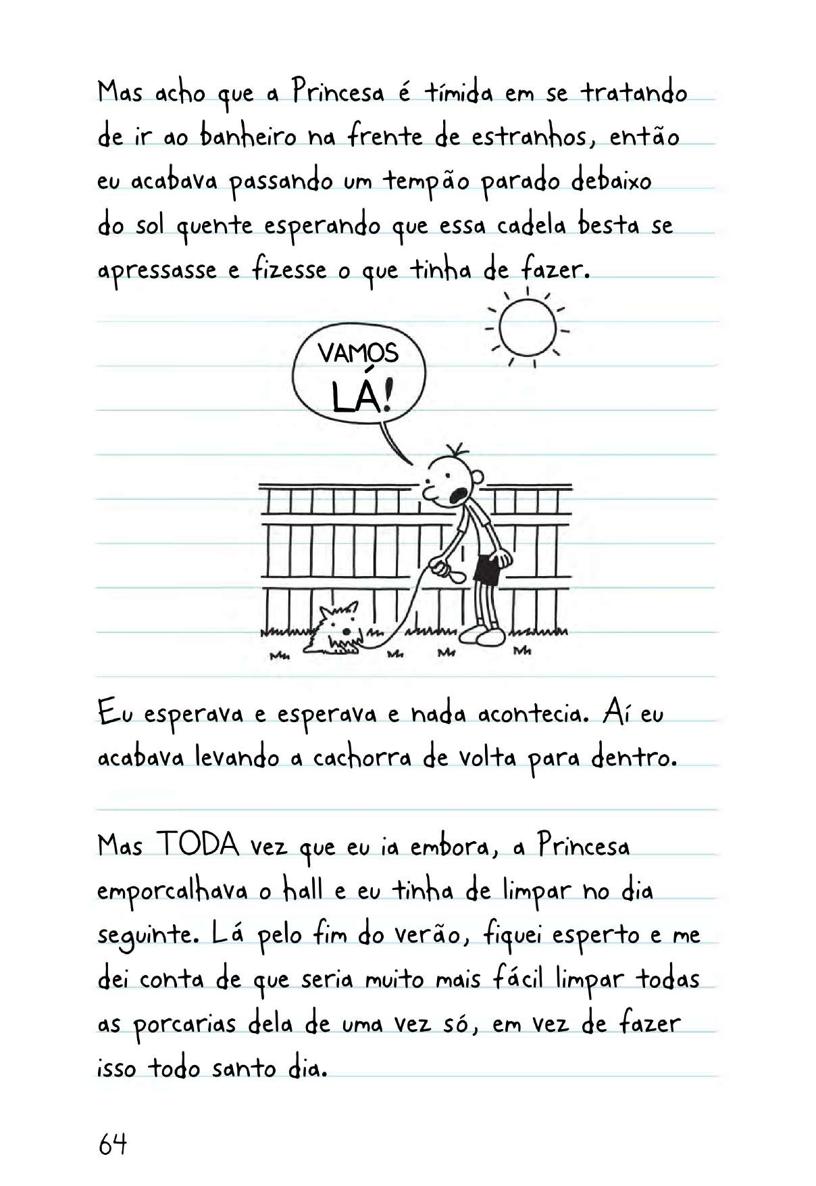 Mas acho que a Princesa é tímida em se tratando
de ir ao banheiro na frente de estranhos, então
eu acabava passando um tempão parado debaixo
do sol quente esperando que essa cadela besta se
apressasse e fizesse o que tinha de fazer.
VAMOS
LÁ!
Eu esperava e esperava e nada acontecia. Aí eu
acabava levando a cachorra de volta para dentro.
Mas TODA vez que eu ia embora, a Princesa
emporcalhava o hall e eu tinha de limpar no dia
seguinte. Lá pelo fim do verão, fiquei esperto e me
dei conta de que seria muito mais fácil limpar todas
as porcarias dela de uma vez só, em vez de fazer
isso todo santo dia.
64